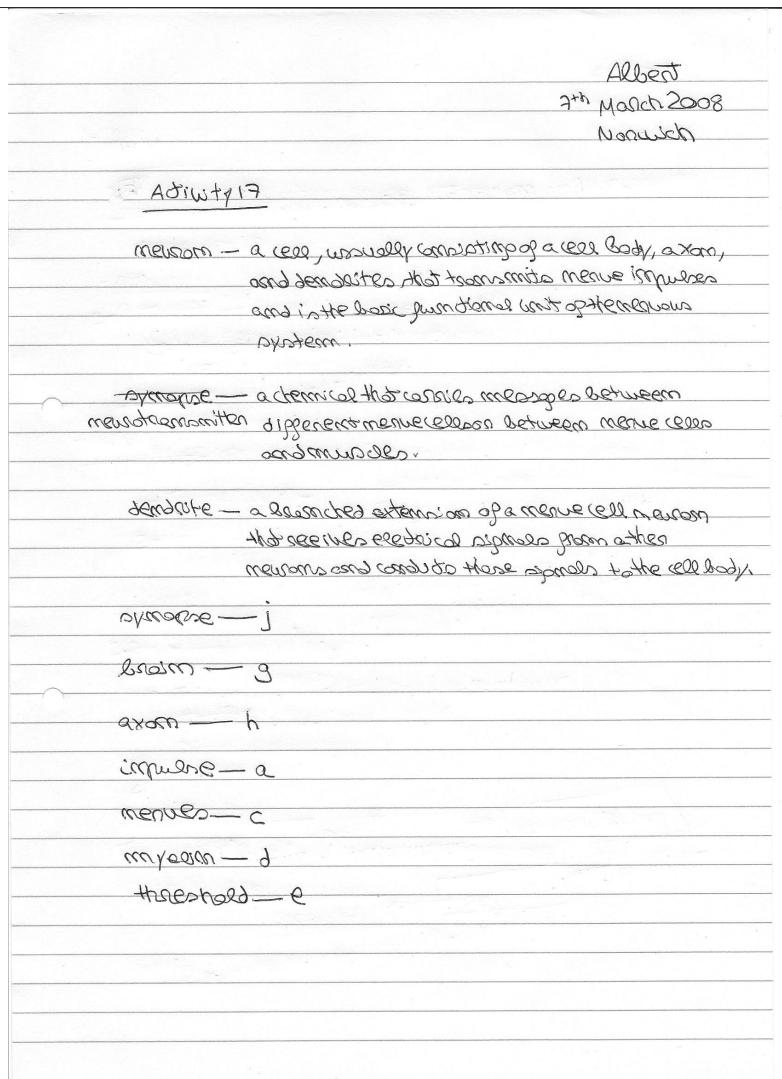 Albert
7th March 2008
Norwich
Activity 17
neuron — a cell, usually consisting of a cell body, axon,
and dendrites that transmits nerve impulses
and is the basic functional unit of the nervous
system.
synapse — a chemical that carries messages between
neurotransmitter different nerve cells or between nerve cells
and muscles.
dendrite — a branched extension of a nerve cell neuron
that receives electrical signals from other
neurons and conducts those signals to the cell body.
synapse — j
brain — g
axon — h
impulse — a
nerves — c
myelin — d
threshold — e